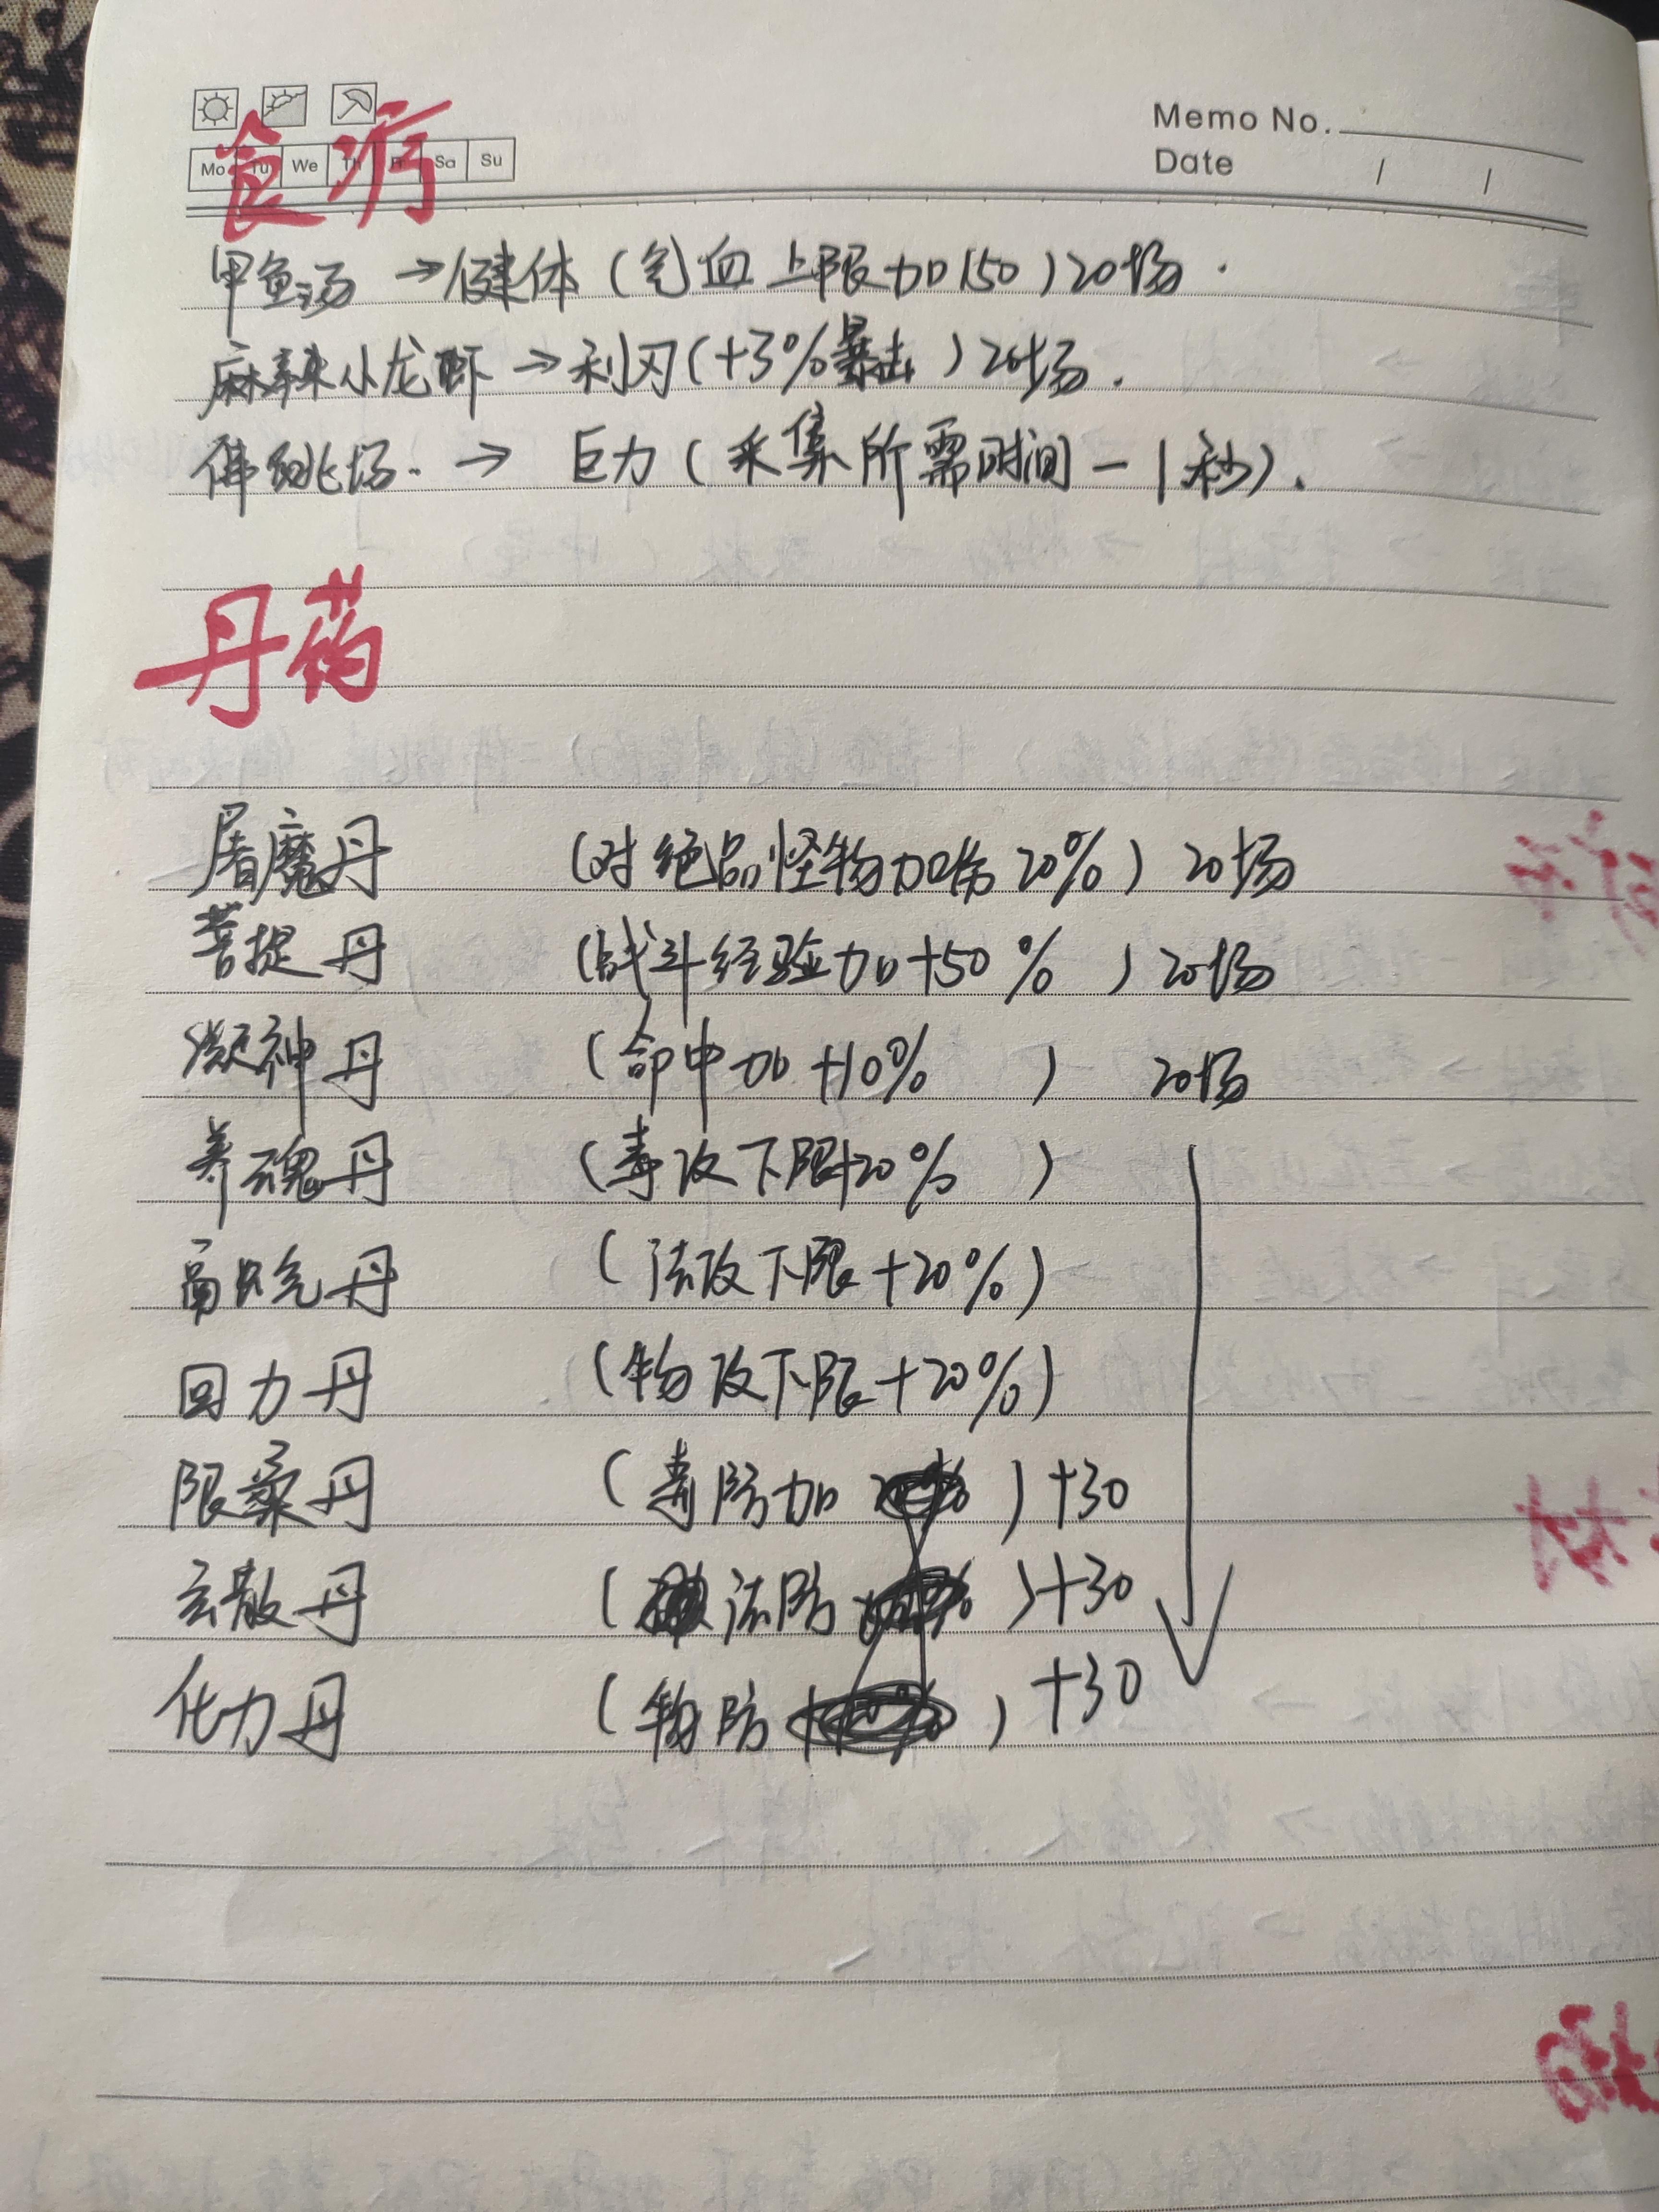 Memo No.
Date / /
Mo Tu We Th Fr Sa Su
食疗
甲鱼汤 → 健体 (气血上限加150) 20场.
麻辣小龙虾 → 利刃 (+3%暴击) 20场.
佛跳场. → 巨力 (采集所需时间 - 1秒).
丹药
屠魔丹 (对绝品怪物加伤20%) 20场
菩提丹 (战斗经验加+50%) 20场
凝神丹 (命中加+10%) 20场
养魂丹 (毒攻下限+20%)
丹 (法攻下限+20%)
回力丹 (物攻下限+20%)
限桑丹 (毒防加) +30
玄散丹 (法防) +30
化力丹 (物防) +30